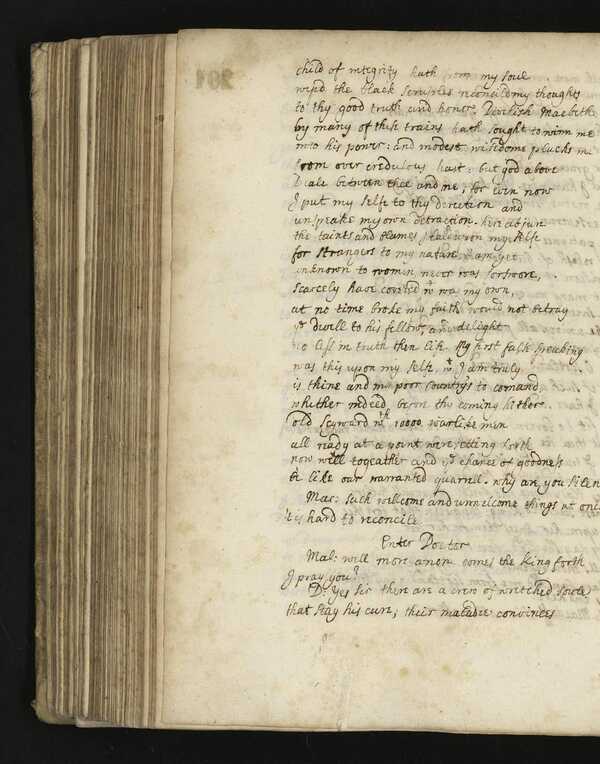 child of integrity hath from my soul
wip'd the black scruples reconcild my thoughts
to thy good truth and honor. Divelish Macbeth
by many of these trains hath sought to winn me
into his power: and modest wisedome plucks me
from over credulous hast: but god above
Deale between thee and me, for even now
I put my selfe to thy direction and
unspeake my own detraction. here abjure
the taints and blames I laid upon my selfe
for strangers to my nature. I am yet
unknown to women never was forswore,
scarcely have coveted wt was my own,
at no time broke my faith would not betray
ye divell to his fellow, and delight
no less in truth then life. My first false speaking
was this upon my selfe, wt I am truly
is thine and my poor country's to comand,
whither indeed before thy coming hither
old Seyward wth 10000 warlike men
all ready at a point were setting forth
now will togeather and ye chance of goodness
be like our warranted quarrel. why are you silen
Mac: such wellcome and unwelcome things at onc
it is hard to reconcile
Enter Doctor
Mal: well more anon comes the King forth
I pray you?
D: Yes Sir there are a crew of wretched soules
that stay his cure; their maladie convinces